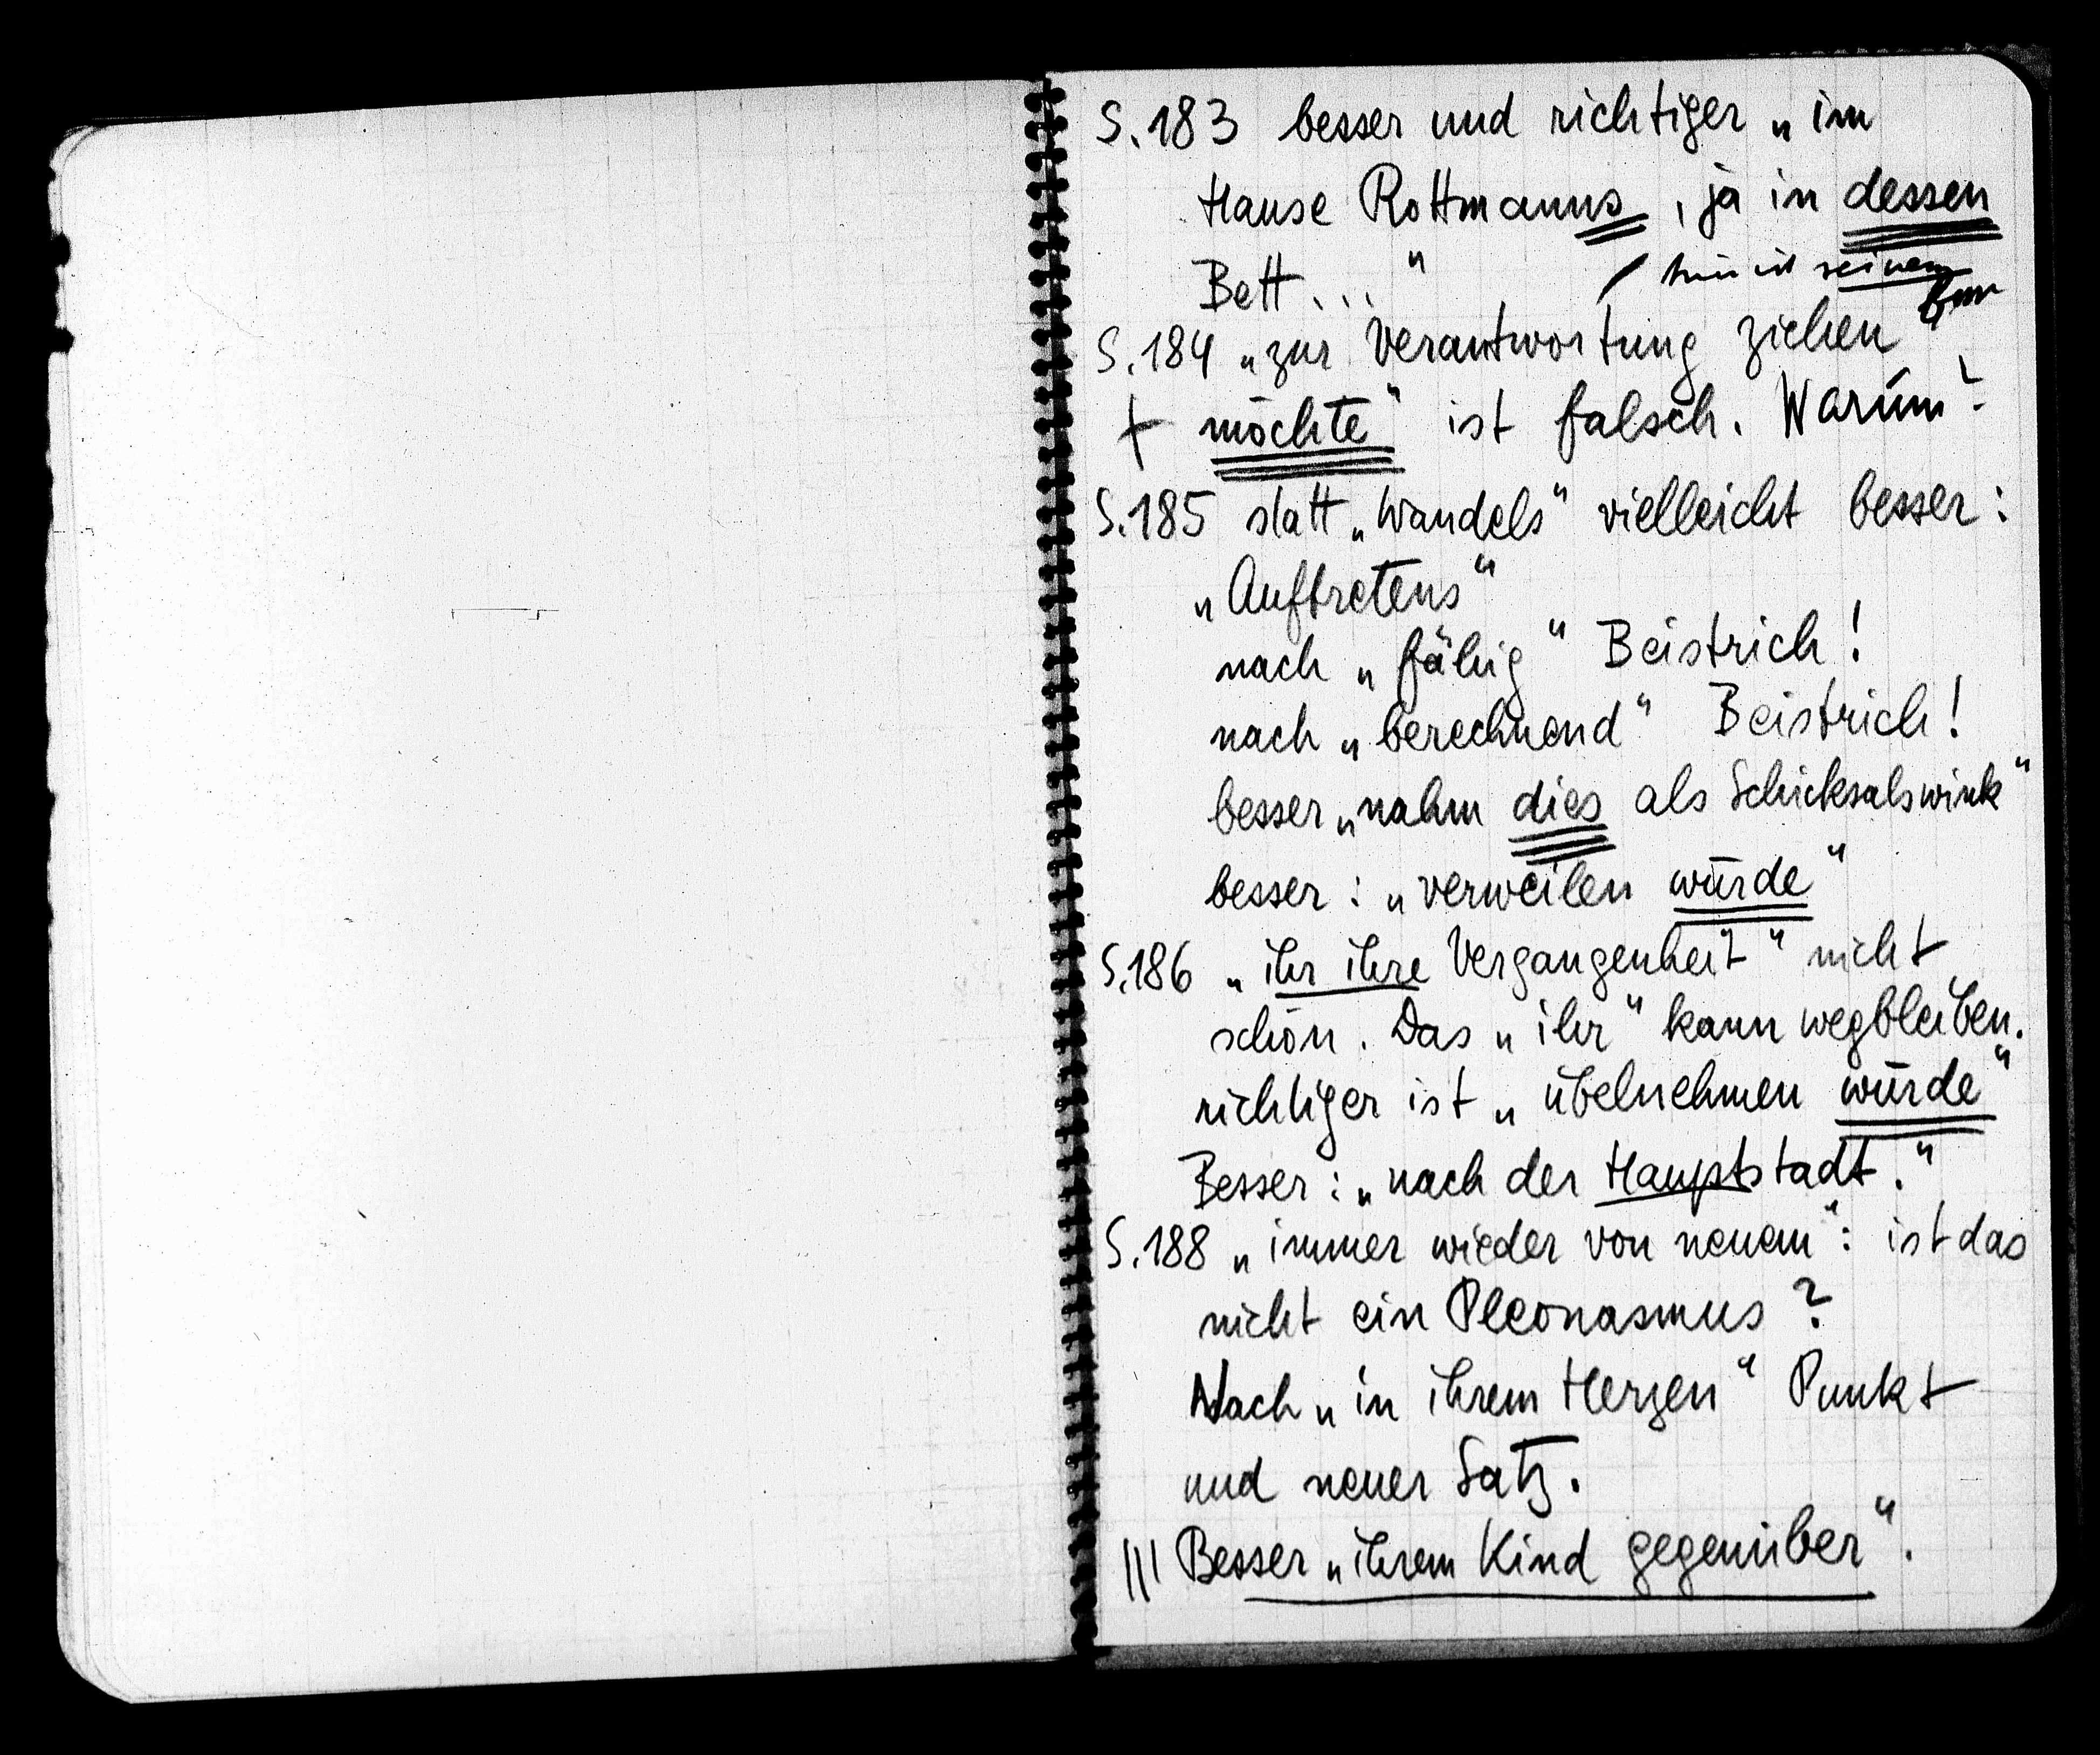 S.183 besser und richtiger „im
Hause Rottmanns, ja in dessen
Bett..."
seinem
S.184 „zur Verantwortung ziehen
möchte" ist falsch. Warum?
S.185 statt „Wandels" vielleicht besser:
„Auftretens"
nach „fähig" Beistrich!
nach „berechnend" Beistrich!
besser „nahm dies als Schicksalswink"
besser: „verweilen würde"
S.186 „ihr ihre Vergangenheit" nicht
schön. Das „ihr" kann wegbleiben.
richtiger ist „übelnehmen würde"
Besser: „nach der Hauptstadt."
S.188 „immer wieder von neuem": ist das
nicht ein Pleonasmus?
Nach „in ihrem Herzen" Punkt
und neuer Satz.
||| Besser „ihrem Kind gegenüber".